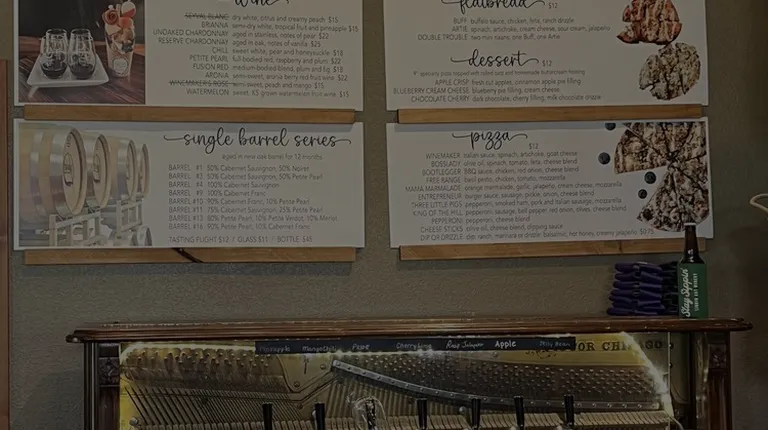 wine
SEYVAL BLANC dry white, citrus and creamy peach $15
BRIANNA semi-dry white, tropical fruit and pineapple $15
UNOAKED CHARDONNAY aged in stainless, notes of pear $22
RESERVE CHARDONNAY aged in oak, notes of vanilla $25
CHILL sweet white, pear and honeysuckle $18
PETITE PEARL full-bodied red, raspberry and plum $22
FUSION RED medium-bodied blend, plum and fig $18
ARONIA semi-sweet, aronia berry red fruit wine $22
WINEMAKER'S ROSE semi-sweet, peach and mango $15
WATERMELON sweet, watermelon fruit wine $15
single barrel series
aged in new oak barrel for 12 months
BARREL #1 50% Cabernet Sauvignon, 50% Noiret
BARREL 50% Cabernet Sauvignon, 50% Petite Pearl
BARREL #4 100% Cabernet Sauvignon
BARREL #9 100% Cabernet Franc
BARREL #10 90% Cabernet Franc, 10% Petite Pearl
BARREL #11 75% Cabernet Sauvignon, 25% Petite Pearl
BARREL 80% Petite Pearl, 10% Petite Verdot, 10% Merlot
BARREL 90% Petite Pearl, 10% Cabernet Franc
TASTING FLIGHT $12 / GLASS $11 / BOTTLE $45
flatbread $12
BUFF buffalo sauce, chicken, feta, ranch drizzle
ARTIE spinach, artichoke, cream cheese, sour cream, jalapeno
DOUBLE TROUBLE two mini naans, one Buff, one Artie
dessert $12
APPLE CRISP fresh cut apples, cinnamon apple pie filling
BLUEBERRY CREAM CHEESE blueberry pie filling, cream cheese
CHOCOLATE CHERRY dark chocolate, cherry filling, milk chocolate drizzle
pizza
$12
WINEMAKER italian sauce, spinach, artichoke, goat cheese
BOSSLADY olive oil, spinach, tomato, feta, cheese blend
BOOTLEGGER BBQ sauce, chicken, red onion, cheese blend
FREE RANGE basil pesto, chicken, tomato, mozzarella
MAMA MARMALADE orange marmalade, garlic, jalapeno, cream cheese, mozzarella
ENTREPRENEUR burger, sauce, sausage, pickle, onion, cheese blend
THREE LITTLE PIGS pepperoni, smoked ham, pork and Italian sausage, mozzarella
KING OF THE HILL pepperoni, sausage, bell pepper, red onion, olives, cheese blend
PEPPERONI pepperoni, cheese blend
CHEESE STICKS olive oil, cheese blend, dipping sauce
DIP OR DRIZZLE dip: ranch, marinara or drizzle: balsamic, hot honey, creamy jalapeno $0.75
Stay Sippin'
Pineapple Mango Chili Pear Cherry Lime Rasp Jalapeno Apple Milly Bean
OR CHICAGO